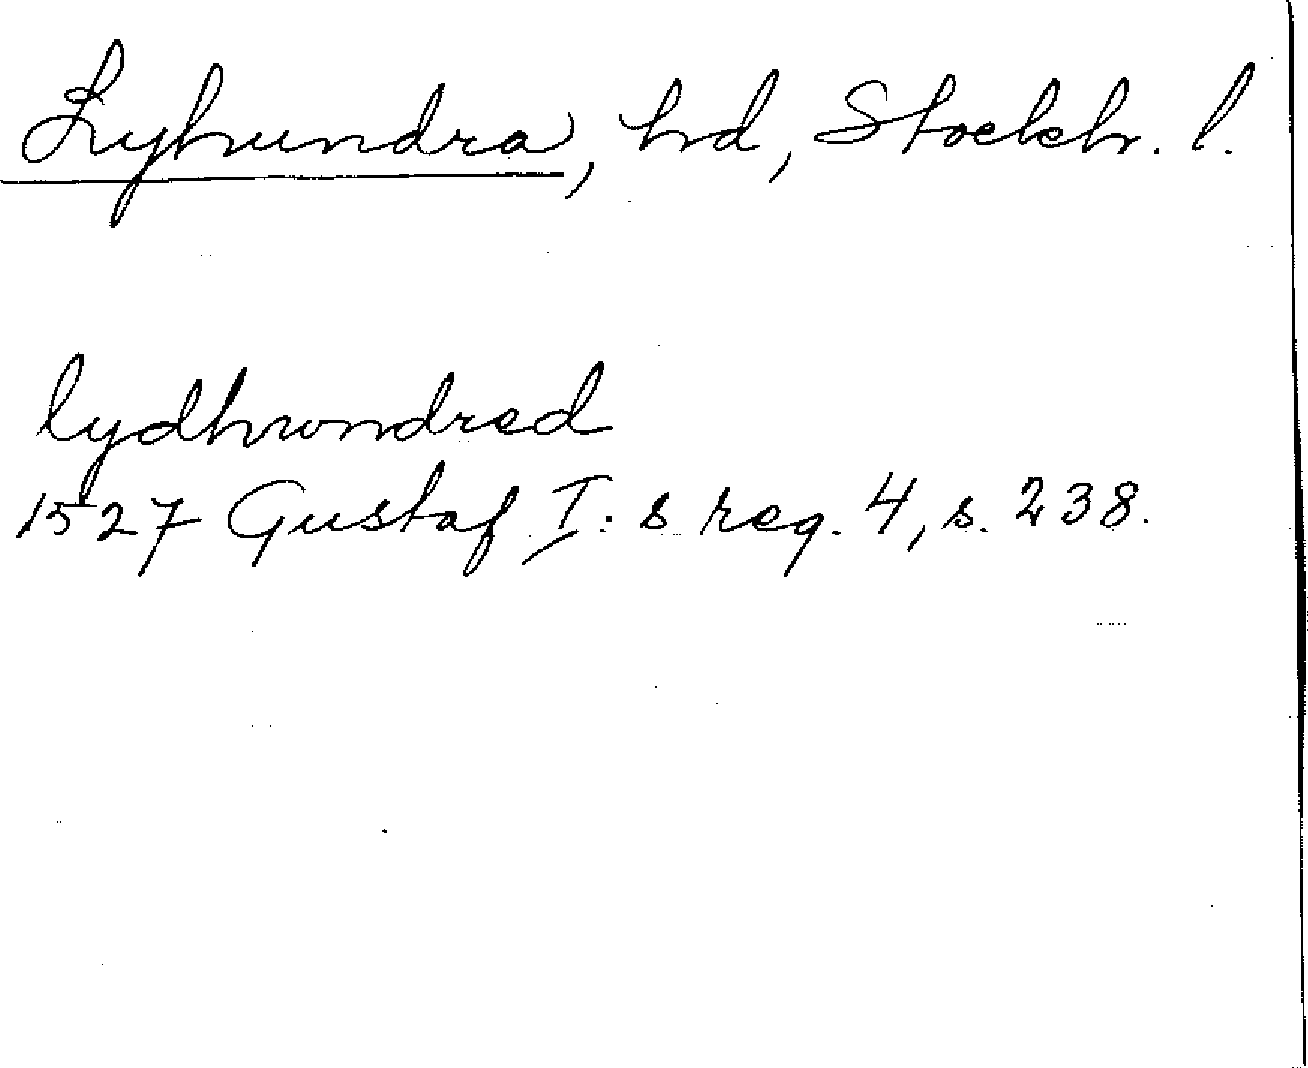 Lyhundra, hd, Stockh. l.
lydhwndred
1527 Gustaf I:s reg. 4, s. 238.